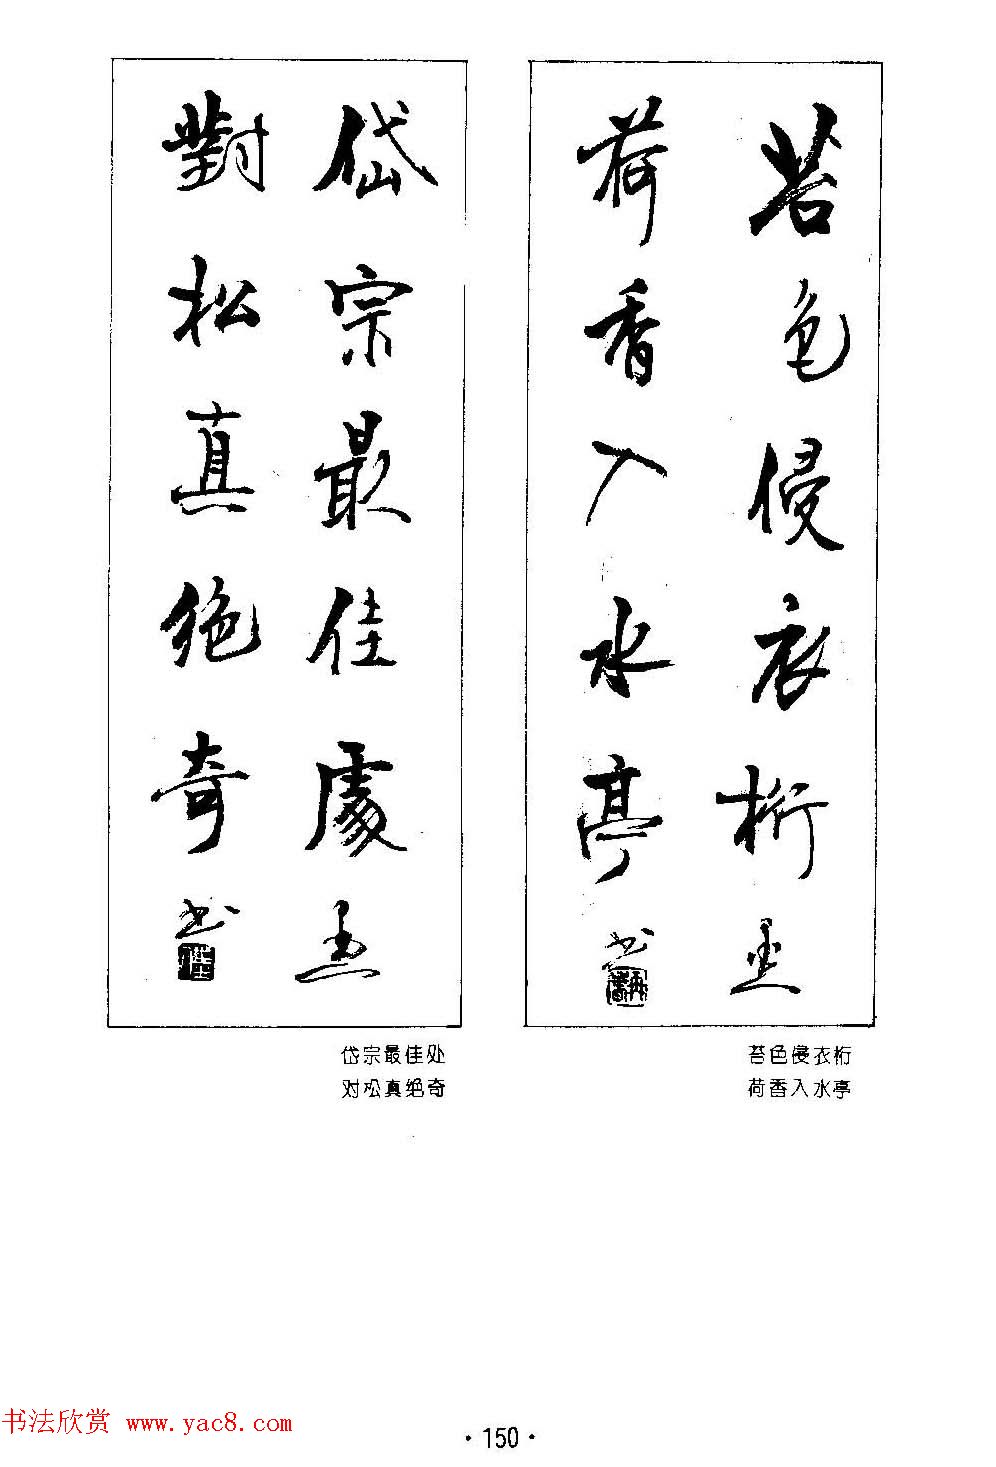 苔色侵衣桁
荷香入水亭
书
岱宗最佳處
對松真絶奇
书
苔色侵衣桁
荷香入水亭
岱宗最佳处
对松真绝奇
书法欣赏 www.yac8.com
·150·